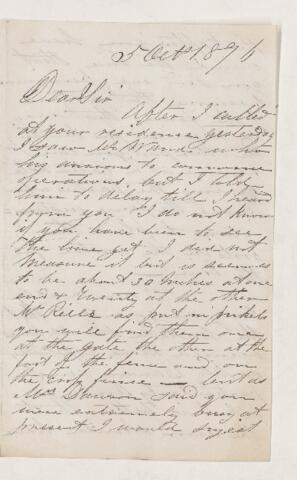 5 Oct 1896
Dear Sir
After I called
at your residence yesterday
I saw Mr who
his anxious to commence
operations, but I told
him to delay till I heard
from you. I do not know
if you have been to see
the line yet I did not
measure it but is seems
to be about 30 inches at one
end & twenty at the other
Mr as put in pickets
you will find them one
at the gate the other at the
foot of the fence and on
the fence — but as
Mrs said you
were extremely busy at
present I would sugest